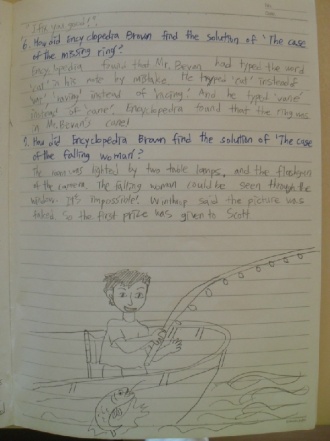 6. How did Encyclopedia Brown find the solution of 'The case
of the missing ring'?
Encyclopedia found that Mr. Bevan had typed the word
in his note by mistake. He typed instead of
instead of And he typed
instead of Encyclopedia found that the ring was
in Mr. Bevan's
How did Encyclopedia Brown find the solution of 'The case
of the falling woman'?
The room was lighted by two table lamps, and the flashgun
of the camera. The falling woman could be seen through the
window. It's impossible. Winthrop said the picture was
so the first prize was given to Scott